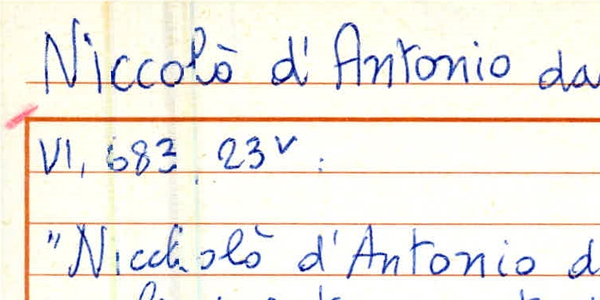 Niccolò d'Antonio da
VI, 683, 23v:
"Niccholò d'Antonio d